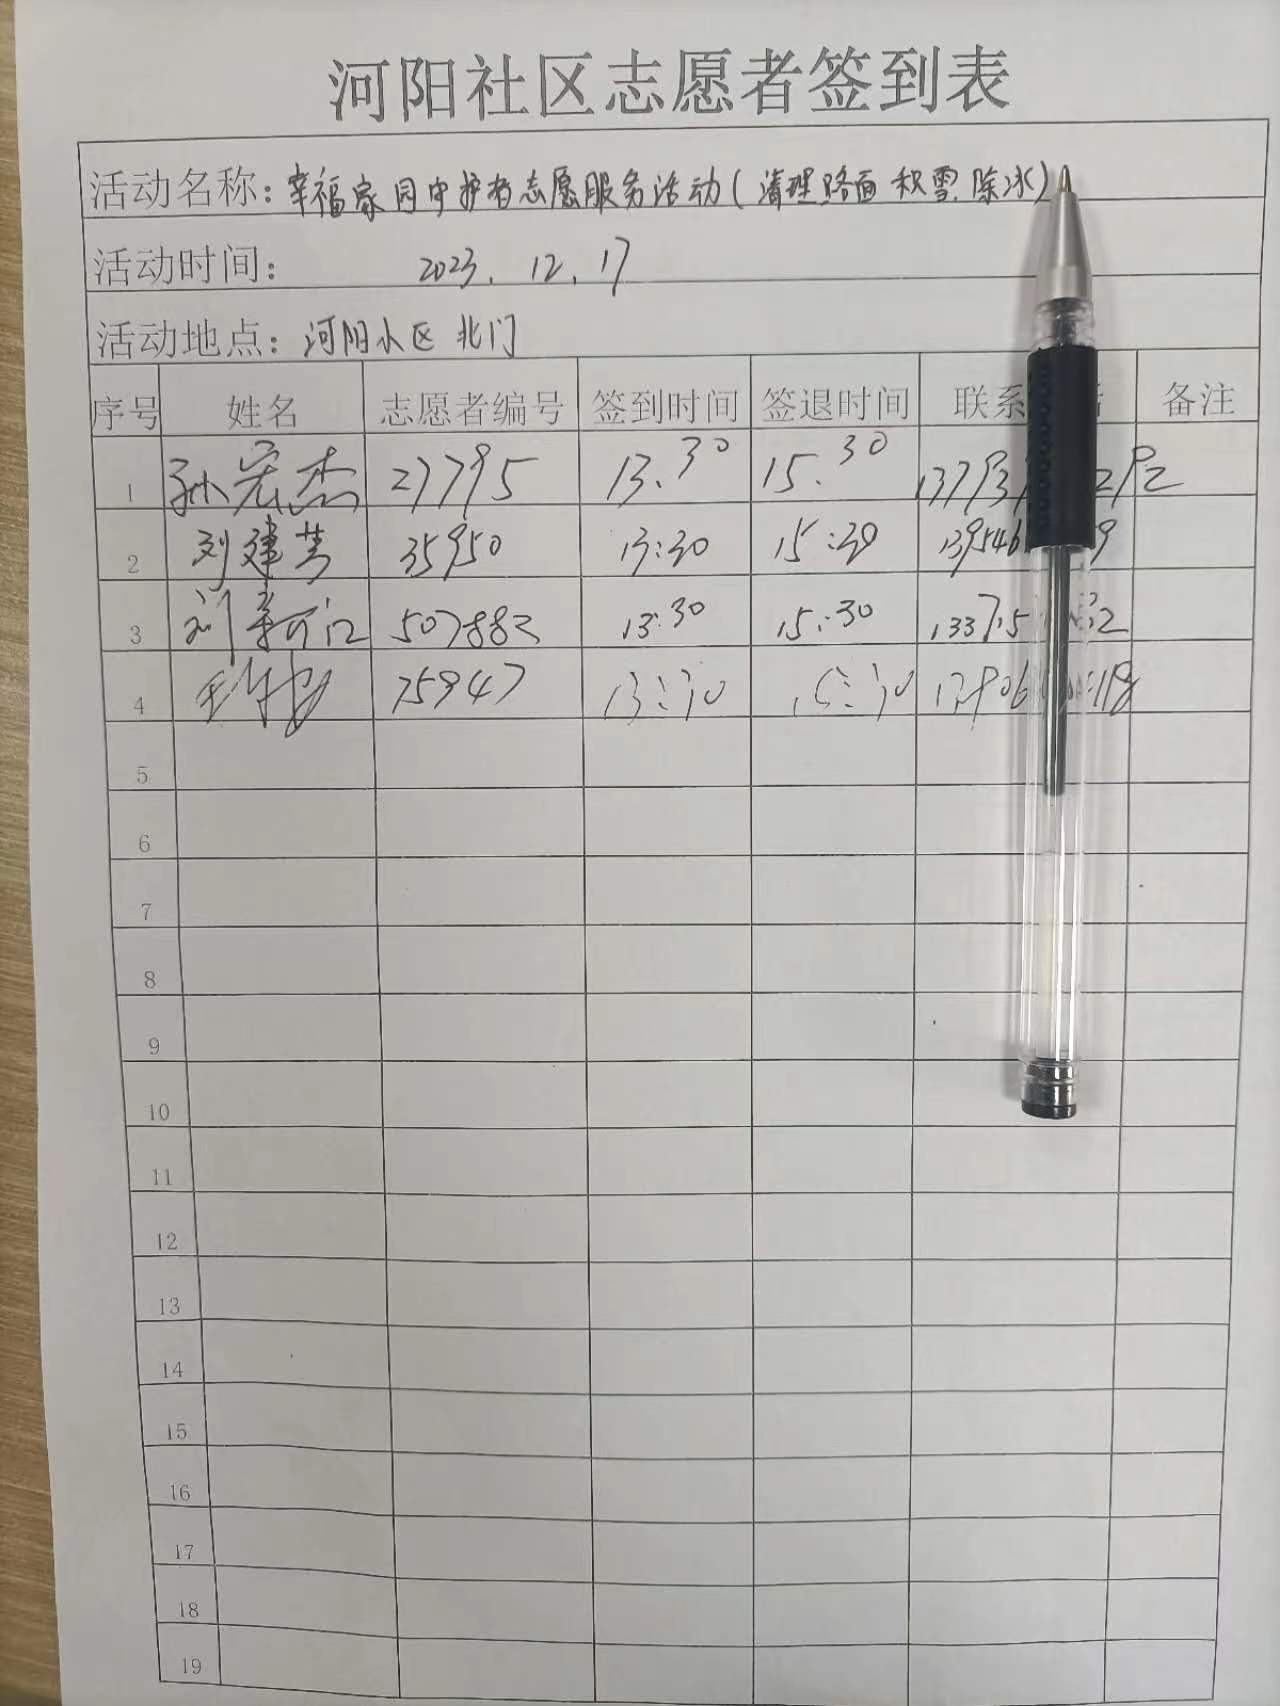 河阳社区志愿者签到表
活动名称：幸福家园守护者志愿服务活动（清理路面积雪除冰）
活动时间： 2023.12.17
活动地点：河阳小区 北门
序号 姓名 志愿者编号 签到时间 签退时间 联系 备注
1 孙宏杰 27795 13.30 15.30
2 刘建 35950 13:30 15:30
3 刘 507882 13:30 15:30
4 75947 13:30 15:30
5
6
7
8
9
10
11
12
13
14
15
16
17
18
19